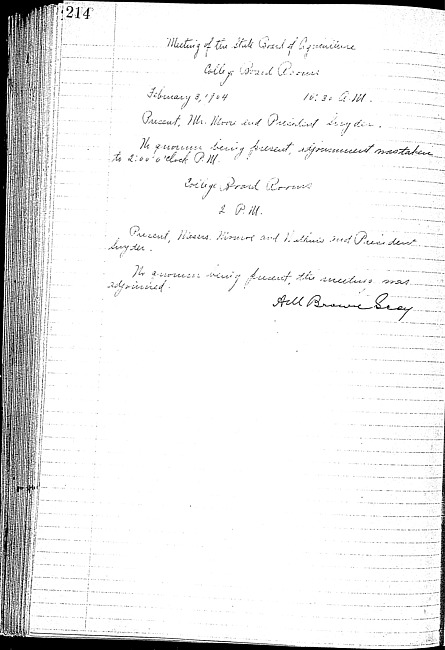 214
Meeting of the State Board of Agriculture
College Board Rooms
February 3, 1904 10:30 A.M.
Present, Mr. Moore and President Snyder.
No quorum being present, adjournment was taken
to 2:00 o'clock P.M.
College Board Rooms
2 P.M.
Present, Messrs. Monroe and Watkins and President
Snyder.
No quorum being present, the meeting was
adjourned.
A M Brown Secy